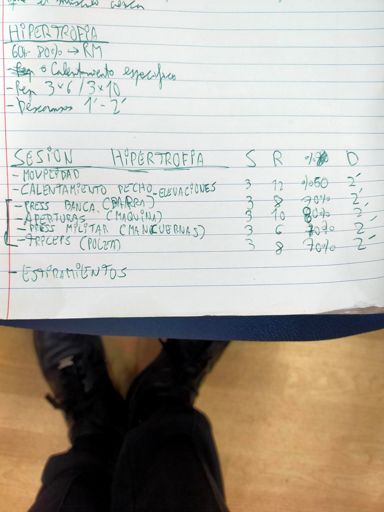 HIPERTROFIA
60% - 80% → RM
Calentamiento específico
- Rep 3x6 / 3x10
- Descansos 1'-2'
SESIÓN HIPERTROFIA S R % D
- MOVILIDAD
- CALENTAMIENTO PECHO - ELEVACIONES 3 12 %50 2'
- PRESS BANCA (BARRA) 3 8 70% 2'
- APERTURAS (MAQUINA) 3 10 80% 2'
- PRESS MILITAR (MANCUERNAS) 3 6 70% 2'
- TRICEPS (POLEA) 3 8 70% 2'
- ESTIRAMIENTOS